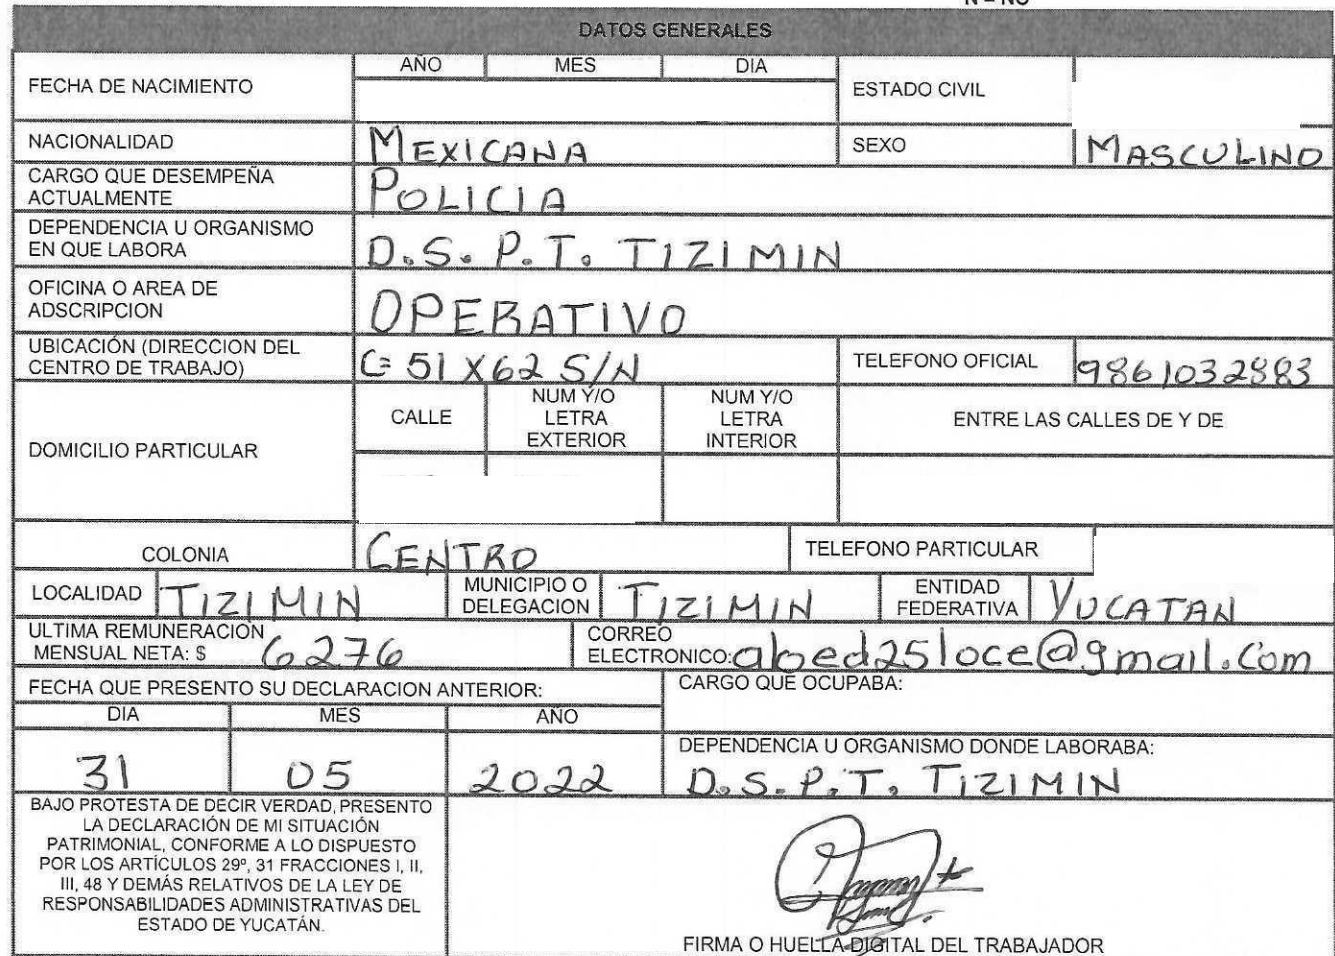 DATOS GENERALES
FECHA DE NACIMIENTO
AÑO MES DIA
ESTADO CIVIL
NACIONALIDAD MEXICANA SEXO MASCULINO
CARGO QUE DESEMPEÑA
ACTUALMENTE
POLICIA
DEPENDENCIA U ORGANISMO
EN QUE LABORA
D.S.P.T. TIZIMIN
OFICINA O AREA DE
ADSCRIPCION
OPERATIVO
UBICACIÓN (DIRECCION DEL
CENTRO DE TRABAJO)
C= 51 X 62 S/N
TELEFONO OFICIAL 9861032883
DOMICILIO PARTICULAR
CALLE
NUM Y/O
LETRA
EXTERIOR
NUM Y/O
LETRA
INTERIOR
ENTRE LAS CALLES DE Y DE
COLONIA CENTRO TELEFONO PARTICULAR
LOCALIDAD TIZIMIN
MUNICIPIO O
DELEGACION
TIZIMIN
ENTIDAD
FEDERATIVA
YUCATAN
ULTIMA REMUNERACION
MENSUAL NETA: $ 6276
CORREO
ELECTRONICO: abed25loce@gmail.com
FECHA QUE PRESENTO SU DECLARACION ANTERIOR:
DIA MES AÑO
31 05 2022
CARGO QUE OCUPABA:
DEPENDENCIA U ORGANISMO DONDE LABORABA:
D.S.P.T. TIZIMIN
BAJO PROTESTA DE DECIR VERDAD, PRESENTO
LA DECLARACIÓN DE MI SITUACIÓN
PATRIMONIAL, CONFORME A LO DISPUESTO
POR LOS ARTÍCULOS 29º, 31 FRACCIONES I, II,
III, 48 Y DEMÁS RELATIVOS DE LA LEY DE
RESPONSABILIDADES ADMINISTRATIVAS DEL
ESTADO DE YUCATÁN.
FIRMA O HUELLA DIGITAL DEL TRABAJADOR